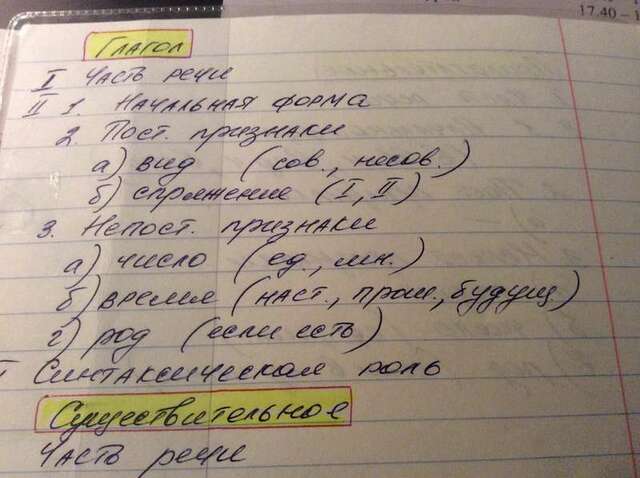 17.40 –
Глагол
I Часть речи
II 1. Начальная форма
2. Пост. признаки
а) вид (сов., несов.)
б) спряжение (I, II)
3. Непост. признаки
а) число (ед., мн.)
б) время (наст., прош., будущ.)
г) род (если есть)
Синтаксическая роль
Существительное
Часть речи